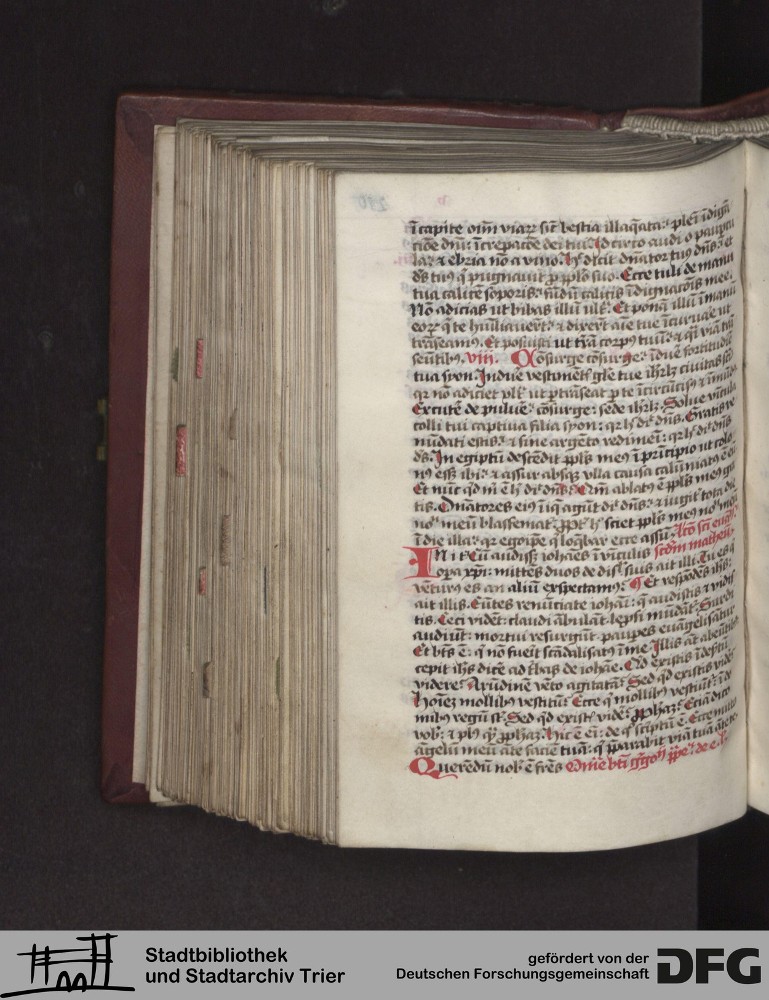 ī capite oīm viarꝝ sic̄ bestia illaqata: pleni īdignatō
dn̄i: īcrepacōe dei tui. Id circo audi o paupcu
la: ⁊ ebria nō a vino. h dicit dn̄ator tuꝰ dn̄s: et
ds̄ tuꝰ q̄ pugnauit ꝓ pplō suo. Ecce tuli de manu
tua calicē soporis: fūdū calicis īdignacōis mee.
Nō adicias ut bibas illū ultᵃ. Et ponā illū ī manu
eorꝝ q̄ te hūiliauerūt: ⁊ dixerūt aīe tue īcuruare ut
trāseamꝰ. Et posuisti ut t̄rā corpꝰ tuū: ⁊ q̄i viā trā
seūtibꝫ. viii. Cōsurge cōsurge: īdue fortitudīe
tua syon. Indue vestimētis gl̄e tue ihrl̄z ciuitas sc̄i
qr nō adiciet vltᵃ ut ptrāseat p te īcircūcisꝰ ⁊ īmūdꝰ
Excutē de puluē: cōsurge: sede ihrl̄z. Solue vīcula
colli tui captiua filia syon: qr h dīc dn̄s. Gratis ve
nūdati estis: ⁊ sine argēto redimēi: qr h dīc dn̄s
ds̄. In egiptū descēdit ppl̄s meꝰ ī principio ut colo
nꝰ esset ibi: ⁊ assur absqꝫ ulla causa calūniatꝰ ē eū
Et nūc qd m̄ ē h dīc dn̄s: Qm̄ ablatꝰ ē ppl̄s meꝰ gra
tis. Dn̄atores eiꝰ īiq̄ agūt dīc dn̄s: ⁊ iugit tota die
nom̄ meū blasfemat. ꝓpt h sciet ppl̄s meꝰ nom̄ meū
ī die illa: qr egoip̄e q̄ loq̄bar ecce assū. Lc̄o sci euḡlii
scdm̄ matheū
IN ill t Cū audiss̄ iohānes ī vinculis
opa xp̄i: mittēs duos de disc̄l suis ait illi. Tu es q̄
vēturꝰ es an aliū exspectamꝰ: Et respōdēs ih̄s:
ait illis. Eūtes renūciate iohāni: q̄ audistis ⁊ vidis
tis. Ceci vidēt: claudi ābulāt: lepsi mūdāt. Surdi
audiūt: mortui resurgūt: paupes euāgelisātur
Et bt̄s ē: q̄ nō fueīt scādalisatꝰ ī me. Illis āt abeūtibꝫ
cepit ih̄s dicē ad t̄bas de iohāne. Qd existis ī destū
videre: Arūdinē vēto agitatā: Sed qd existis vidē
hoīez mollibꝫ vestitū: Ecce q̄ mollibꝫ vestiūt: ī do
mibꝫ regū st̄. Sed qd exist̄ vidē: ꝓphaz: Eciā dico
vob: ⁊ plꝰ q̄ ꝓphaz. hic ē eī: de q̄ sc̄ptū ē. Ecce mitto
āgelū meū āte faciē tuā: q̄ ꝓparabit viā tuā āte te.
Querēdū nob ē fr̄es Om̄e bt̄i ḡgorii pp̄e: de e. l.
Stadtbibliothek
und Stadtarchiv Trier
gefördert von der
Deutschen Forschungsgemeinschaft
DFG